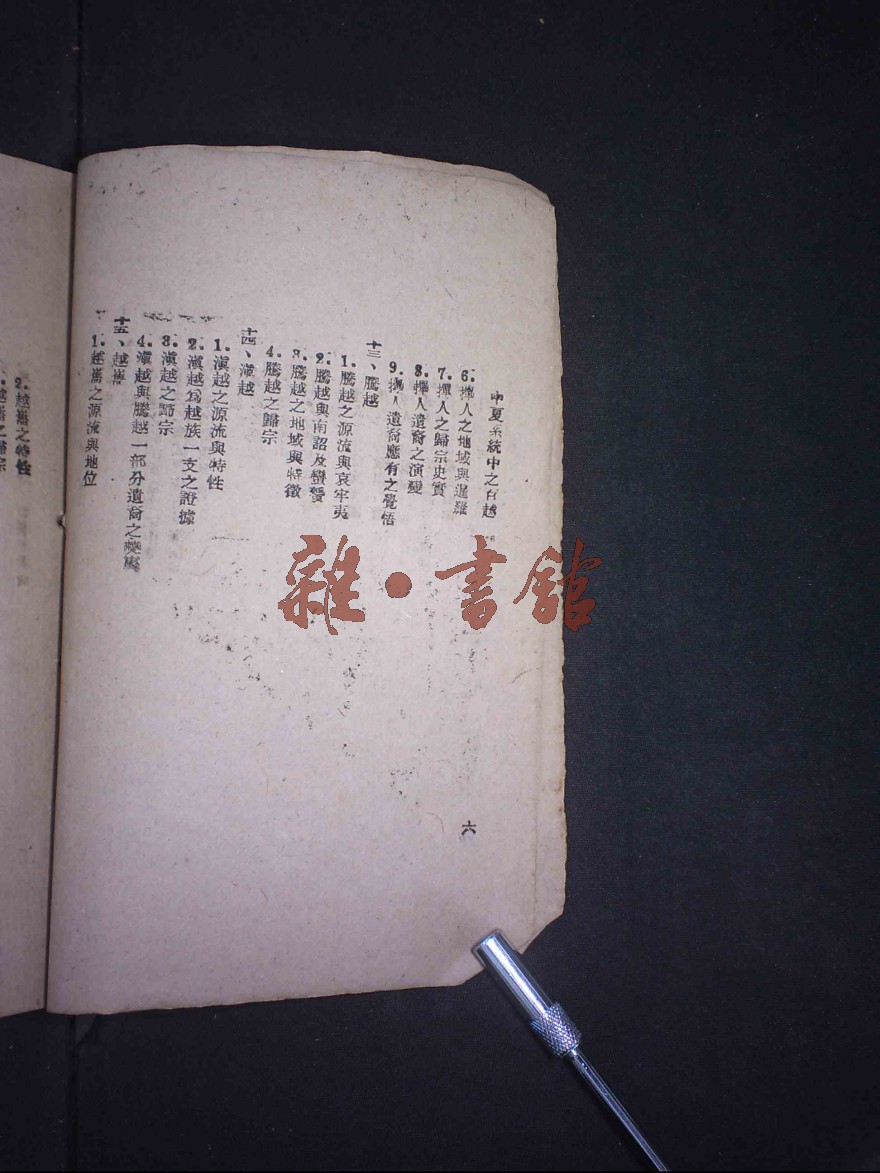 中夏系統中之百越
6. 撣人之地域與暹羅
7. 撣人之歸宗史實
8. 撣人遺裔之演變
9. 撣人遺裔應有之覺悟
十三、騰越
1. 騰越之源流與哀牢夷
2. 騰越與南詔及蠻爨
3. 騰越之地域與特徵
4. 騰越之歸宗
十四、滇越
1. 滇越之源流與特性
2. 滇越爲越族一支之證據
3. 滇越之歸宗
4. 滇越與騰越一部分遺裔之變遷
十五、越嶲
1. 越嶲之源流與地位
六
2. 越嶲之特性
越嶲之歸宗
雜·書館